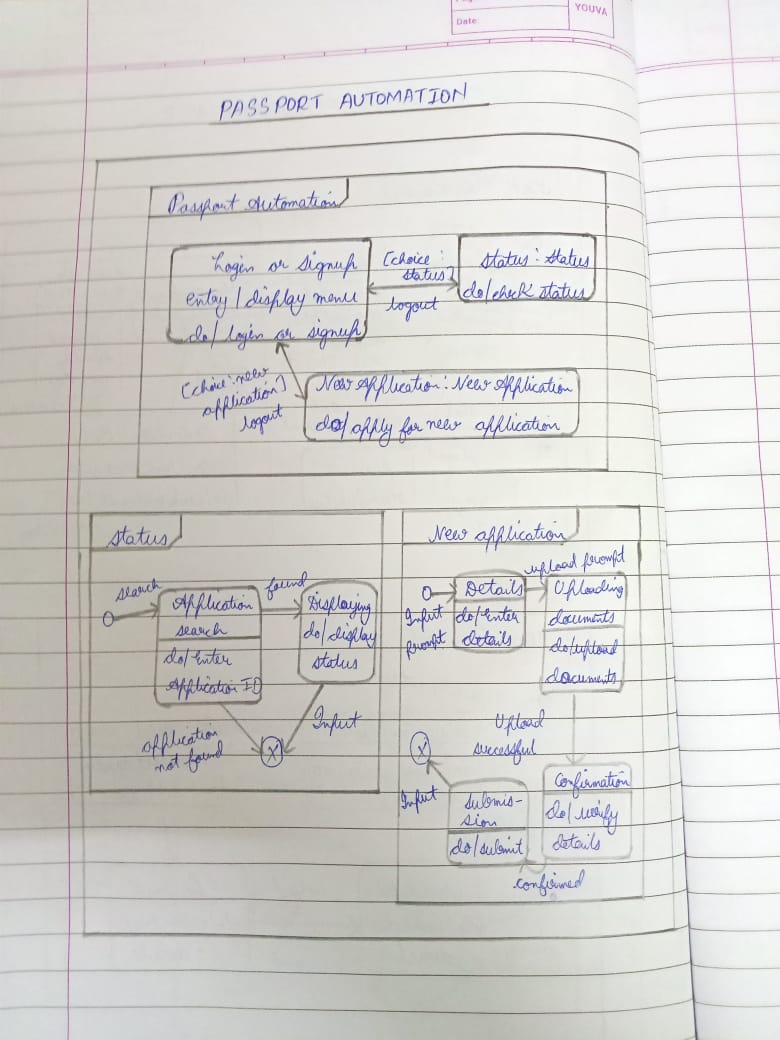 YOUVA
Date:
PASSPORT AUTOMATION
Passport Automation
Login or Signup
entry / display menu
do/ login or signup
[choice :
status]
logout
Status : Status
do/check status
[choice : new
application]
logout
New Application : New Application
do/ apply for new application
Status
search
Application
search
do/Enter
Application ID
found
Displaying
do/display
status
application
not found
Input
X
New application
Input
prompt
Details
do/Enter
details
upload prompt
Uploading
documents
do/upload
documents
Upload
successful
Confirmation
do/verify
details
confirmed
Submis-
sion
do/submit
Input
X